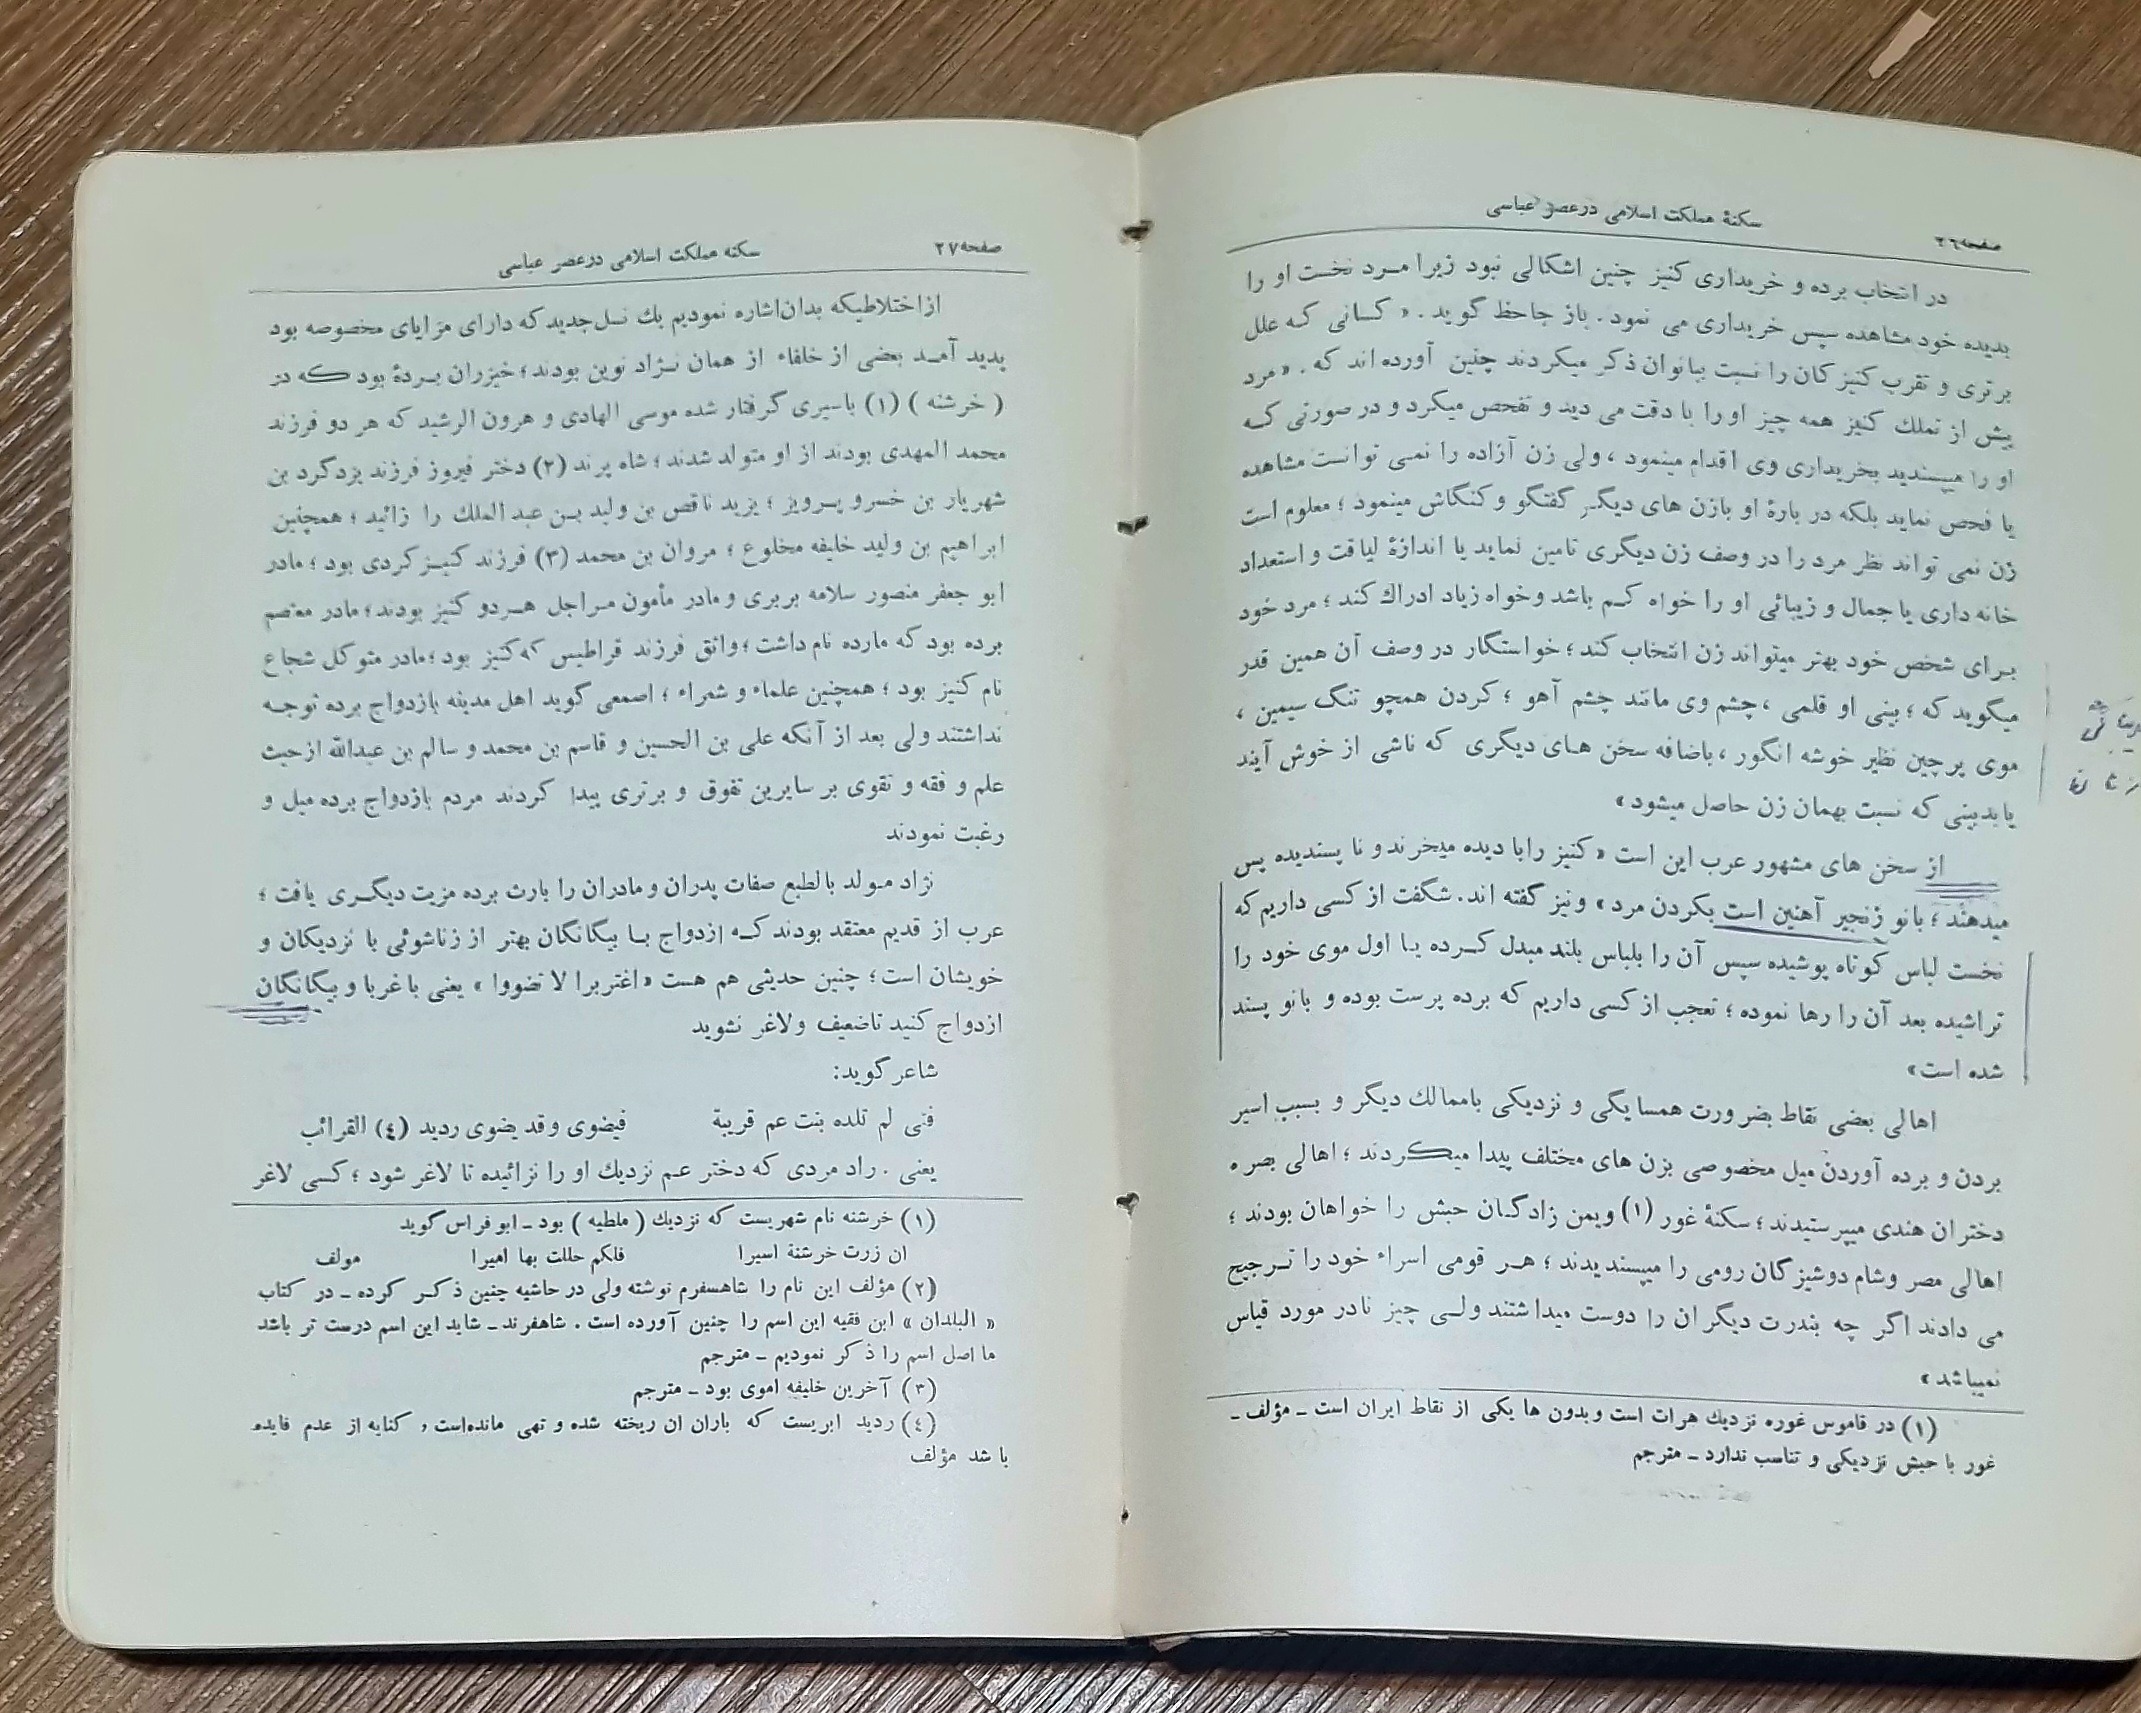 سکنهٔ مملکت اسلامی درعصر عباسی
صفحه۲٦
در انتخاب برده و خریداری کنیز چنین اشکالی نبود زیرا مرد نخست او را
بدیده خود مشاهده سپس خریداری می نمود. باز جاحظ گوید. « کسانی که علل
برتری و تقرب کنیزکان را نسبت ببانوان ذکر میکردند چنین آورده اند که. «مرد
پیش از تملك کنیز همه چیز اورا با دقت می دید و تفحص میکرد و در صورتی که
او را میپسندید بخریداری وی اقدام مینمود ، ولی زن آزاده را نمی توانست مشاهده
یا فحص نماید بلکه در بارهٔ او بازن های دیگر گفتگو و کنگاش مینمود ؛ معلوم است
زن نمی تواند نظر مرد را در وصف زن دیگری تامین نماید یا اندازهٔ لیاقت و استعداد
خانه داری یا جمال و زیبائی او را خواه کم باشد وخواه زیاد ادراك کند ؛ مرد خود
برای شخص خود بهتر میتواند زن انتخاب کند ؛ خواستگار در وصف آن همین قدر
میگوید که ؛ بینی او قلمی ، چشم وی مانند چشم آهو ؛ کردن همچو تنگ سیمین ،
موی پرچین نظیر خوشه انگور ، باضافه سخن های دیگری که ناشی از خوش آیند
یابدبینی که نسبت بهمان زن حاصل میشود »
از سخن های مشهور عرب این است « کنیز رابا دیده میخرند و نا پسندیده پس
میدهند ؛ بانو زنجیر آهنین است بکردن مرد » ونیز گفته اند. شگفت از کسی داریم که
نخست لباس کوتاه پوشیده سپس آن را بلباس بلند مبدل کرده یا اول موی خود را
تراشیده بعد آن را رها نموده ؛ تعجب از کسی داریم که برده پرست بوده و بانو پسند
شده است »
اهالی بعضی نقاط بضرورت همسایگی و نزدیکی باممالك دیگر و بسبب اسیر
بردن و برده آوردن میل مخصوصی بزن های مختلف پیدا میکردند ؛ اهالی بصره
دختران هندی میپرستیدند ؛ سکنهٔ غور (۱) ویمن زادگان حبش را خواهان بودند ؛
اهالی مصر وشام دوشیزگان رومی را میپسندیدند ؛ هر قومی اسراء خود را ترجیح
می دادند اگر چه بندرت دیگران را دوست میداشتند ولی چیز نادر مورد قیاس
نمیباشد »
(۱) در قاموس غوره نزدیك هرات است وبدون ها یکی از نقاط ایران است ـ مؤلف ـ
غور با حبش نزدیکی و تناسب ندارد ـ مترجم
صفحه۲۷
سکنه مملکت اسلامی درعصر عباسی
ازاختلاطیکه بدان اشاره نمودیم یك نسل جدید که دارای مزایای مخصوصه بود
پدید آمد بعضی از خلفاء از همان نژاد نوین بودند ؛ خیزران بردهٔ بود که در
( خرشنه ) (۱) باسیری گرفتار شده موسی الهادی و هرون الرشید که هر دو فرزند
محمد المهدی بودند از او متولد شدند ؛ شاه پرند (۲) دختر فیروز فرزند یزدگرد بن
شهریار بن خسرو پرویز ؛ یزید ناقص بن ولید بن عبد الملك را زائید ؛ همچنین
ابراهیم بن ولید خلیفه مخلوع ؛ مروان بن محمد (۳) فرزند کنیز کردی بود ؛ مادر
ابو جعفر منصور سلامه بربری و مادر مأمون مراجل هردو کنیز بودند ؛ مادر معتصم
برده بود که مارده نام داشت ؛ واثق فرزند قراطیس که کنیز بود ؛ مادر متوکل شجاع
نام کنیز بود ؛ همچنین علماء و شعراء ؛ اصمعی گوید اهل مدینه بازدواج برده توجه
نداشتند ولی بعد از آنکه علی بن الحسین و قاسم بن محمد و سالم بن عبدالله ازحیث
علم و فقه و تقوی بر سایرین تفوق و برتری پیدا کردند مردم بازدواج برده میل و
رغبت نمودند
نژاد مولد بالطبع صفات پدران و مادران را بارث برده مزیت دیگری یافت ؛
عرب از قدیم معتقد بودند که ازدواج با بیگانگان بهتر از زناشوئی با نزدیکان و
خویشان است ؛ چنین حدیثی هم هست « اغتربرا لا تضووا » یعنی با غربا و بیگانگان
ازدواج کنید تاضعیف ولاغر نشوید
شاعر گوید:
فتی لم تلده بنت عم قریبة فیضوی وقد یضوی ردید (٤) القرائب
یعنی . راد مردی که دختر عم نزدیك او را نزائیده تا لاغر شود ؛ کسی لاغر
(۱) خرشنه نام شهریست که نزدیك ( ملطیه ) بود ـ ابو فراس گوید
ان زرت خرشنة اسیرا فلکم حللت بها امیرا مولف
(۲) مؤلف این نام را شاهسفرم نوشته ولی در حاشیه چنین ذکر کرده ـ در کتاب
« البلدان » ابن فقیه این اسم را چنین آورده است . شاهفرند ـ شاید این اسم درست تر باشد
ما اصل اسم را ذکر نمودیم ـ مترجم
(۳) آخرین خلیفه اموی بود ـ مترجم
(٤) ردید ابریست که باران ان ریخته شده و تهی مانده‌است , کنایه از عدم فایده
با شد مؤلف